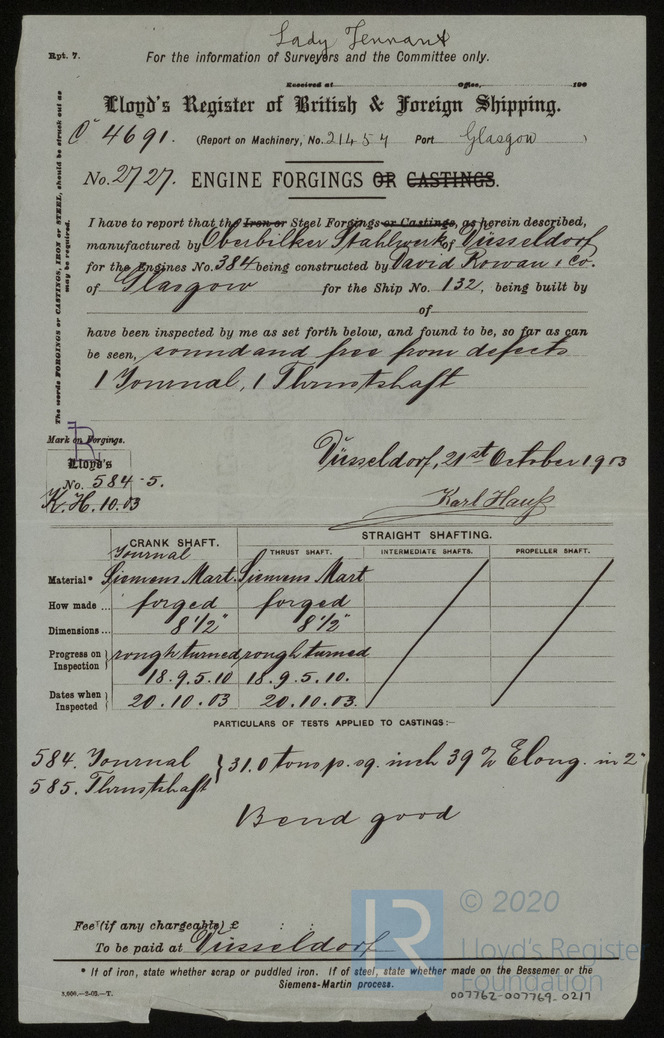 Lady Tennant
Rpt. 7.
For the information of Surveyors and the Committee only.
Received at Office, 190
Lloyd's Register of British & Foreign Shipping.
C 4691. (Report on Machinery, No. 21454 Port Glasgow )
No. 2727. ENGINE FORGINGS OR CASTINGS.
The words FORGINGS or CASTINGS, IRON or STEEL, should be struck out as
may be required.
I have to report that the Iron or Steel Forgings or Castings, as herein described,
manufactured by Oberbilker Stahlwerk of Düsseldorf
for the Engines No. 384 being constructed by David Rowan & Co.
of Glasgow for the Ship No. 132, being built by
of
have been inspected by me as set forth below, and found to be, so far as can
be seen, sound and free from defects
1 Journal, 1 Thrustshaft
Mark on Forgings.
R
Lloyd's
No. 584-5.
K.H. 10.03
Düsseldorf, 21st October 1903
Karl Hauß
CRANK SHAFT. STRAIGHT SHAFTING.
Journal THRUST SHAFT. INTERMEDIATE SHAFTS. PROPELLER SHAFT.
Material* Siemens Mart. Siemens Mart
How made ... forged forged
Dimensions ... 8 1/2" 8 1/2"
Progress on Inspection } rough turned rough turned
18.9.5.10 18.9.5.10.
Dates when Inspected } 20.10.03 20.10.03.
PARTICULARS OF TESTS APPLIED TO CASTINGS:—
584. Journal } 31.0 tons p. sq. inch 39% Elong. in 2"
585. Thrustshaft
Bend good
Fee (if any chargeable) £ : :
To be paid at Düsseldorf
* If of iron, state whether scrap or puddled iron. If of steel, state whether made on the Bessemer or the
Siemens-Martin process.
3,000.—2-03.—T.
LR
© 2020
Lloyd's Register
Foundation
007762-007769-0217